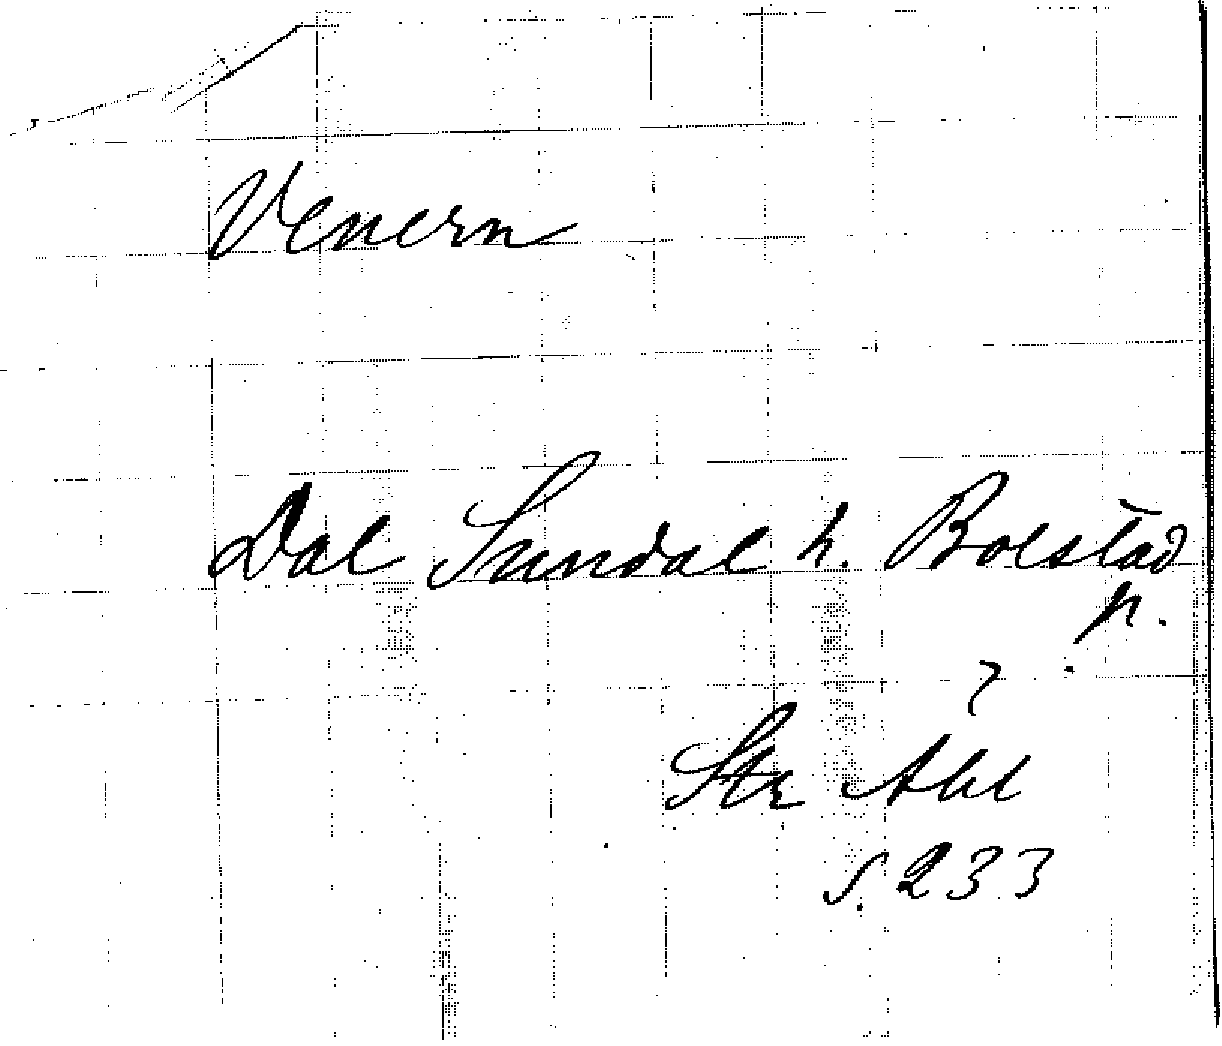 Venern
Dal Sundal h. Bolstad
p.
?
Str Ahl
s. 233